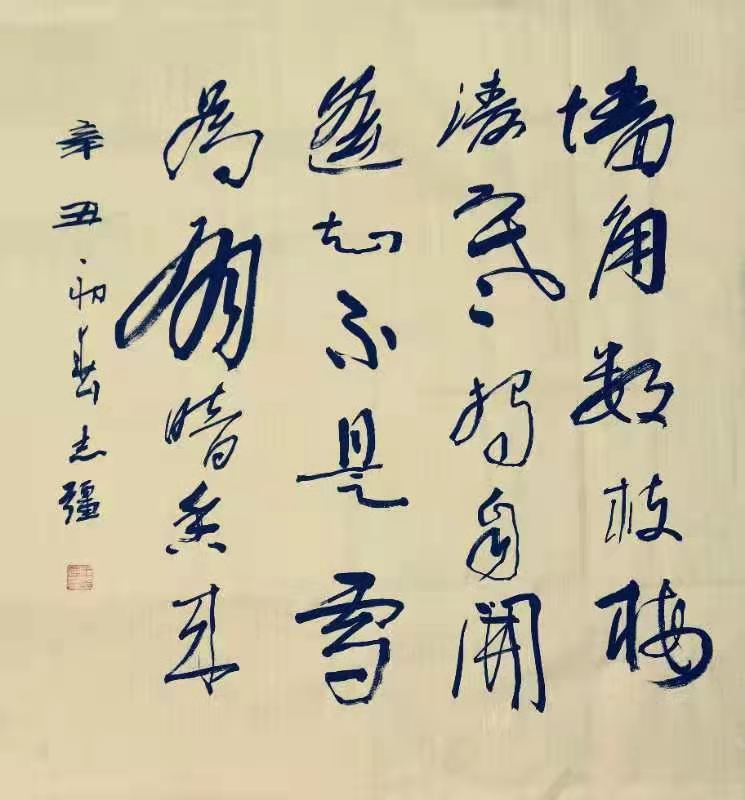 墙角数枝梅
凌寒独自开
遥知不是雪
为有暗香来
辛丑初春志疆